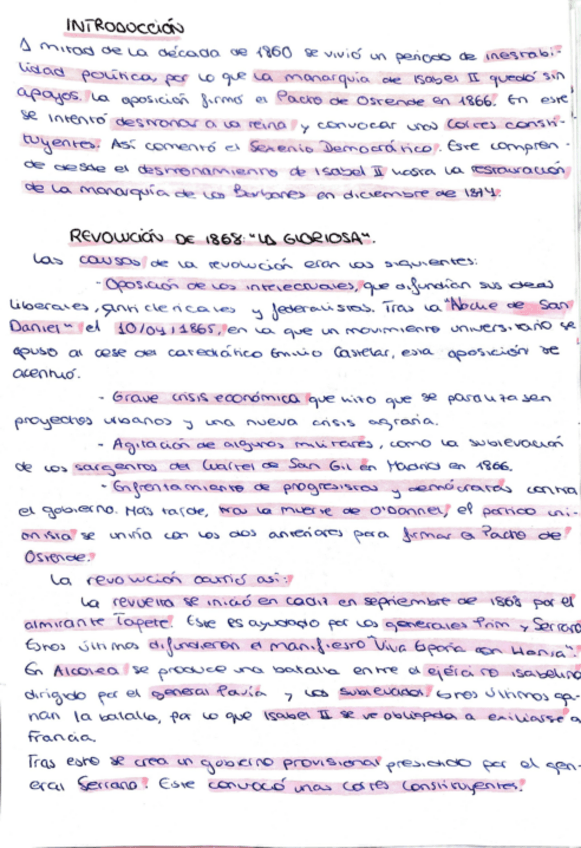 INTRODUCCIÓN
A mitad de la década de 1860 se vivió un periodo de inestabi-
lidad política, por lo que la monarquía de Isabel II quedó sin
apoyos. La oposición firmó el Pacto de Ostende en 1866. En este
se intentó destronar a la reina y convocar unas Cortes consti-
tuyentes. Así comentó el Sexenio Democrático. Este compren-
de desde el destronamiento de Isabel II hasta la restauración
de la monarquía de los Borbones en diciembre de 1874.
REVOLUCIÓN DE 1868: "LA GLORIOSA".
Las causas de la revolución eran las siguientes:
- Oposición de los intelectuales, que difundían sus ideas
liberales, anticlericales y federalistas. Tras la "Noche de San
Daniel" el 10/04/1865, en la que un movimiento universitario se
opuso al cese del catedrático Emilio Castelar, esta oposición se
acentuó.
- Grave crisis económica que hizo que se paralizasen
proyectos urbanos y una nueva crisis agraria.
- Agitación de algunos militares, como la sublevación
de los sargentos del Cuartel de San Gil en Madrid en 1866.
- Enfrentamiento de progresistas y demócratas contra
el gobierno. Más tarde, tras la muerte de O'Donnel, el partido uni-
onista se uniría con los dos anteriores para firmar el Pacto de
Ostende.
La revolución ocurrió así:
La revuelta se inició en Cádiz en septiembre de 1868 por el
almirante Topete. Este es ayudado por los generales Prim y Serrano.
Estos últimos difundieron el manifiesto "Viva España con Honra".
En Alcolea se produce una batalla entre el ejército isabelino
dirigido por el general Pavía y los sublevados. Estos últimos ga-
nan la batalla, por lo que Isabel II se ve obligada a exiliarse a
Francia.
Tras esto se crea un gobierno provisional presidido por el gen-
eral Serrano. Este convocó unas Cortes Constituyentes.